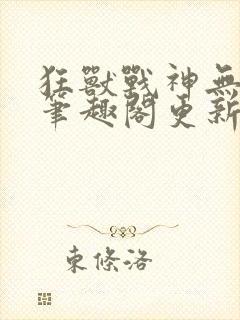 狂獸戰神無
筆趣閣更新
東條洛